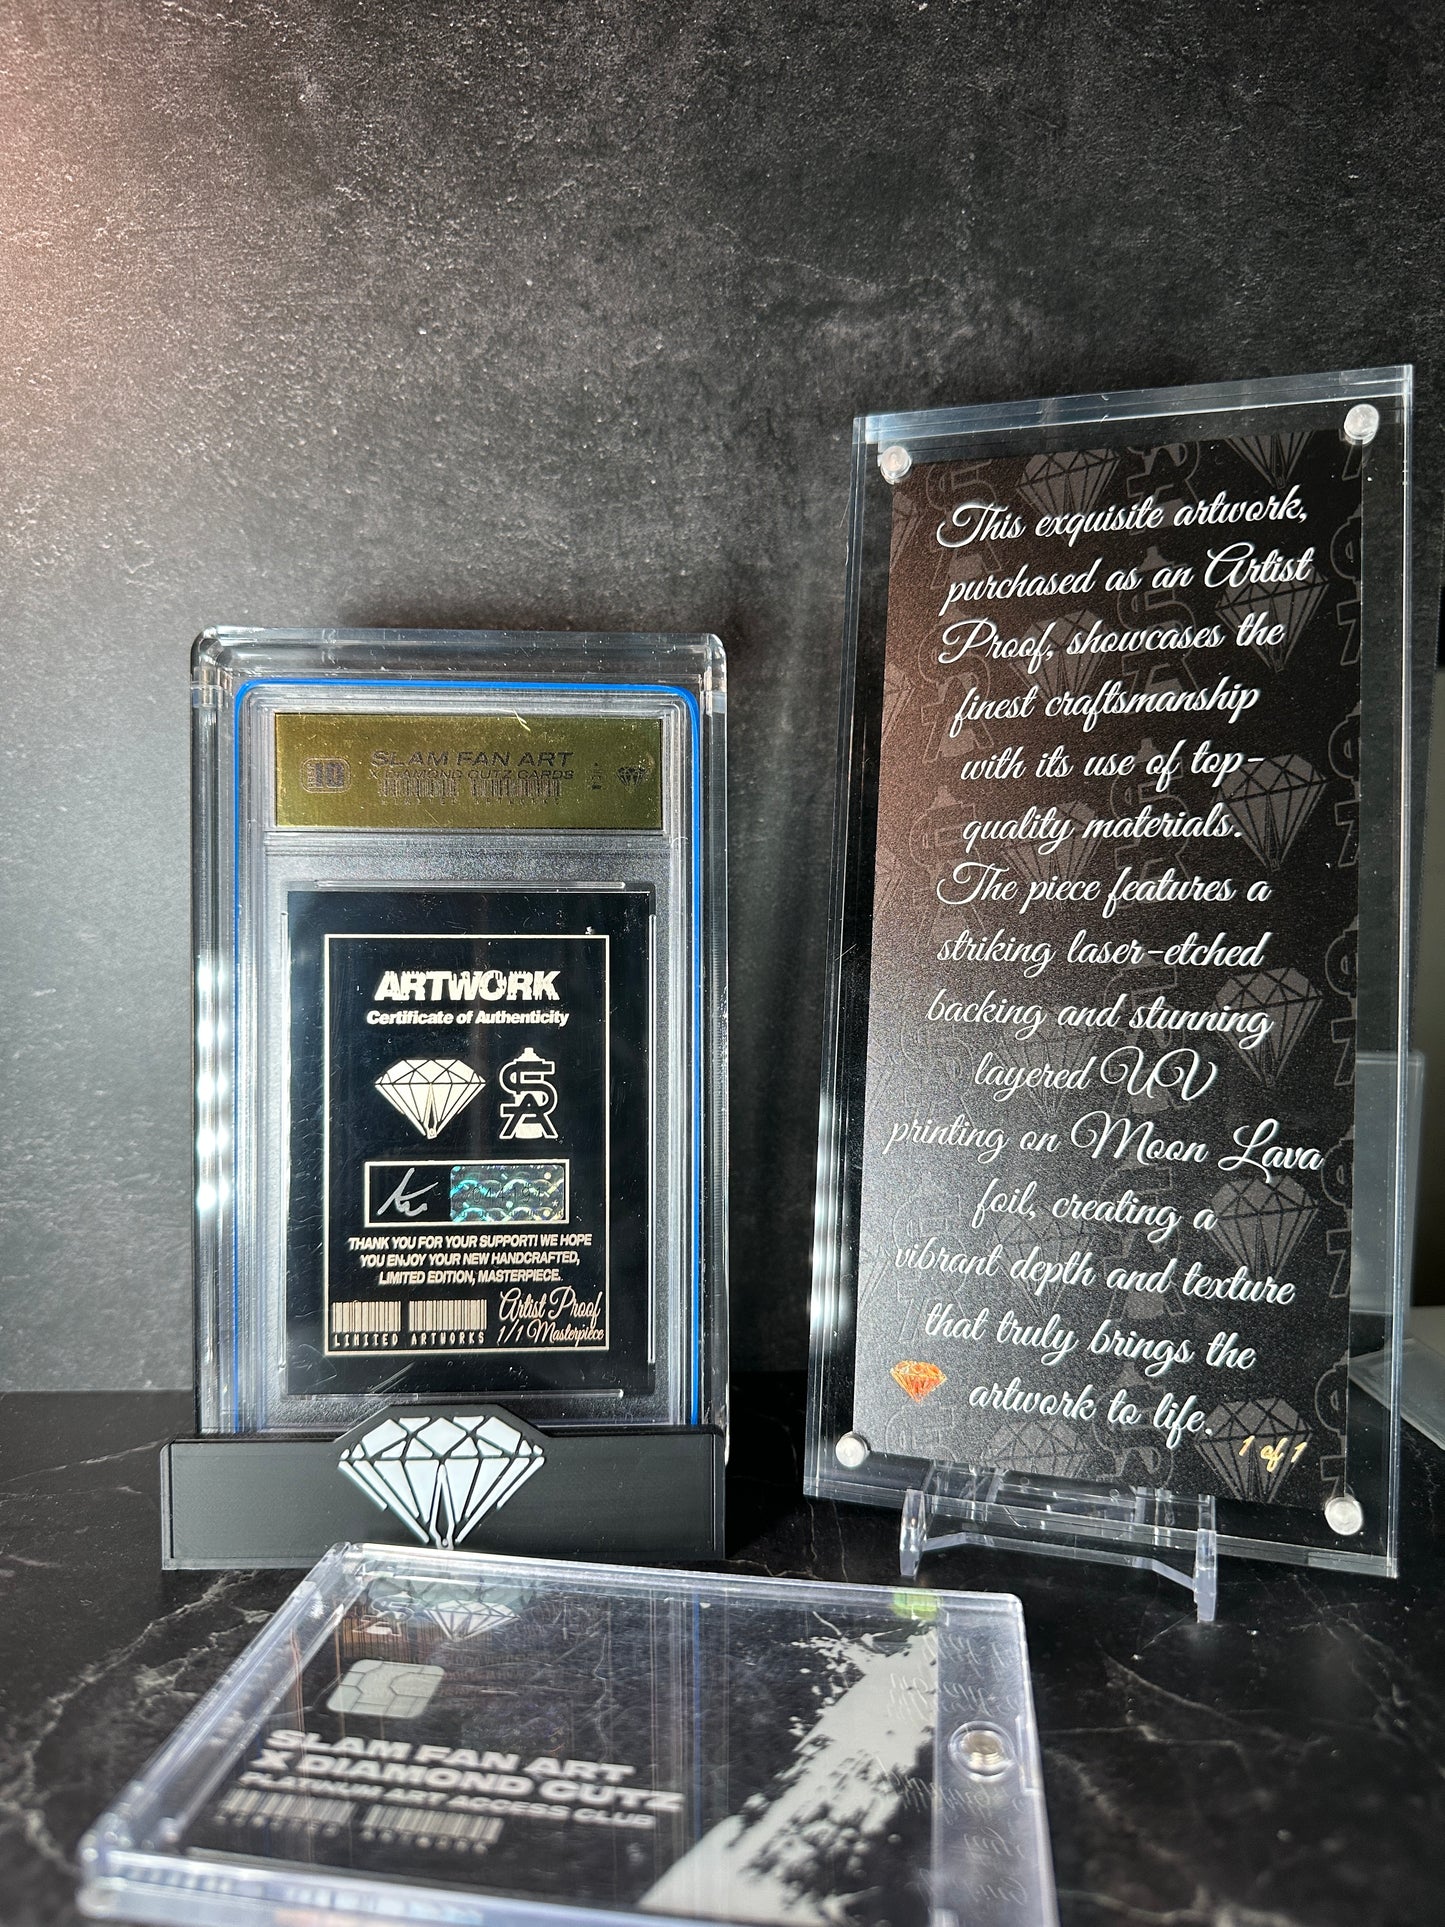 10
SLAM FAN ART
X DIAMOND CUTZ CARDS
LIMITED ARTWORKS
ARTWORK
Certificate of Authenticity
SA
THANK YOU FOR YOUR SUPPORT! WE HOPE
YOU ENJOY YOUR NEW HANDCRAFTED,
LIMITED EDITION, MASTERPIECE.
Artist Proof
1/1 Masterpiece
LIMITED ARTWORKS
This exquisite artwork,
purchased as an Artist
Proof, showcases the
finest craftsmanship
with its use of top-
quality materials.
The piece features a
striking laser-etched
backing and stunning
layered UV
printing on Moon Lava
foil, creating a
vibrant depth and texture
that truly brings the
artwork to life.
1 of 1
SLAM FAN ART
X DIAMOND CUTZ
PLATINUM ART ACCESS CLUB
LIMITED ARTWORK